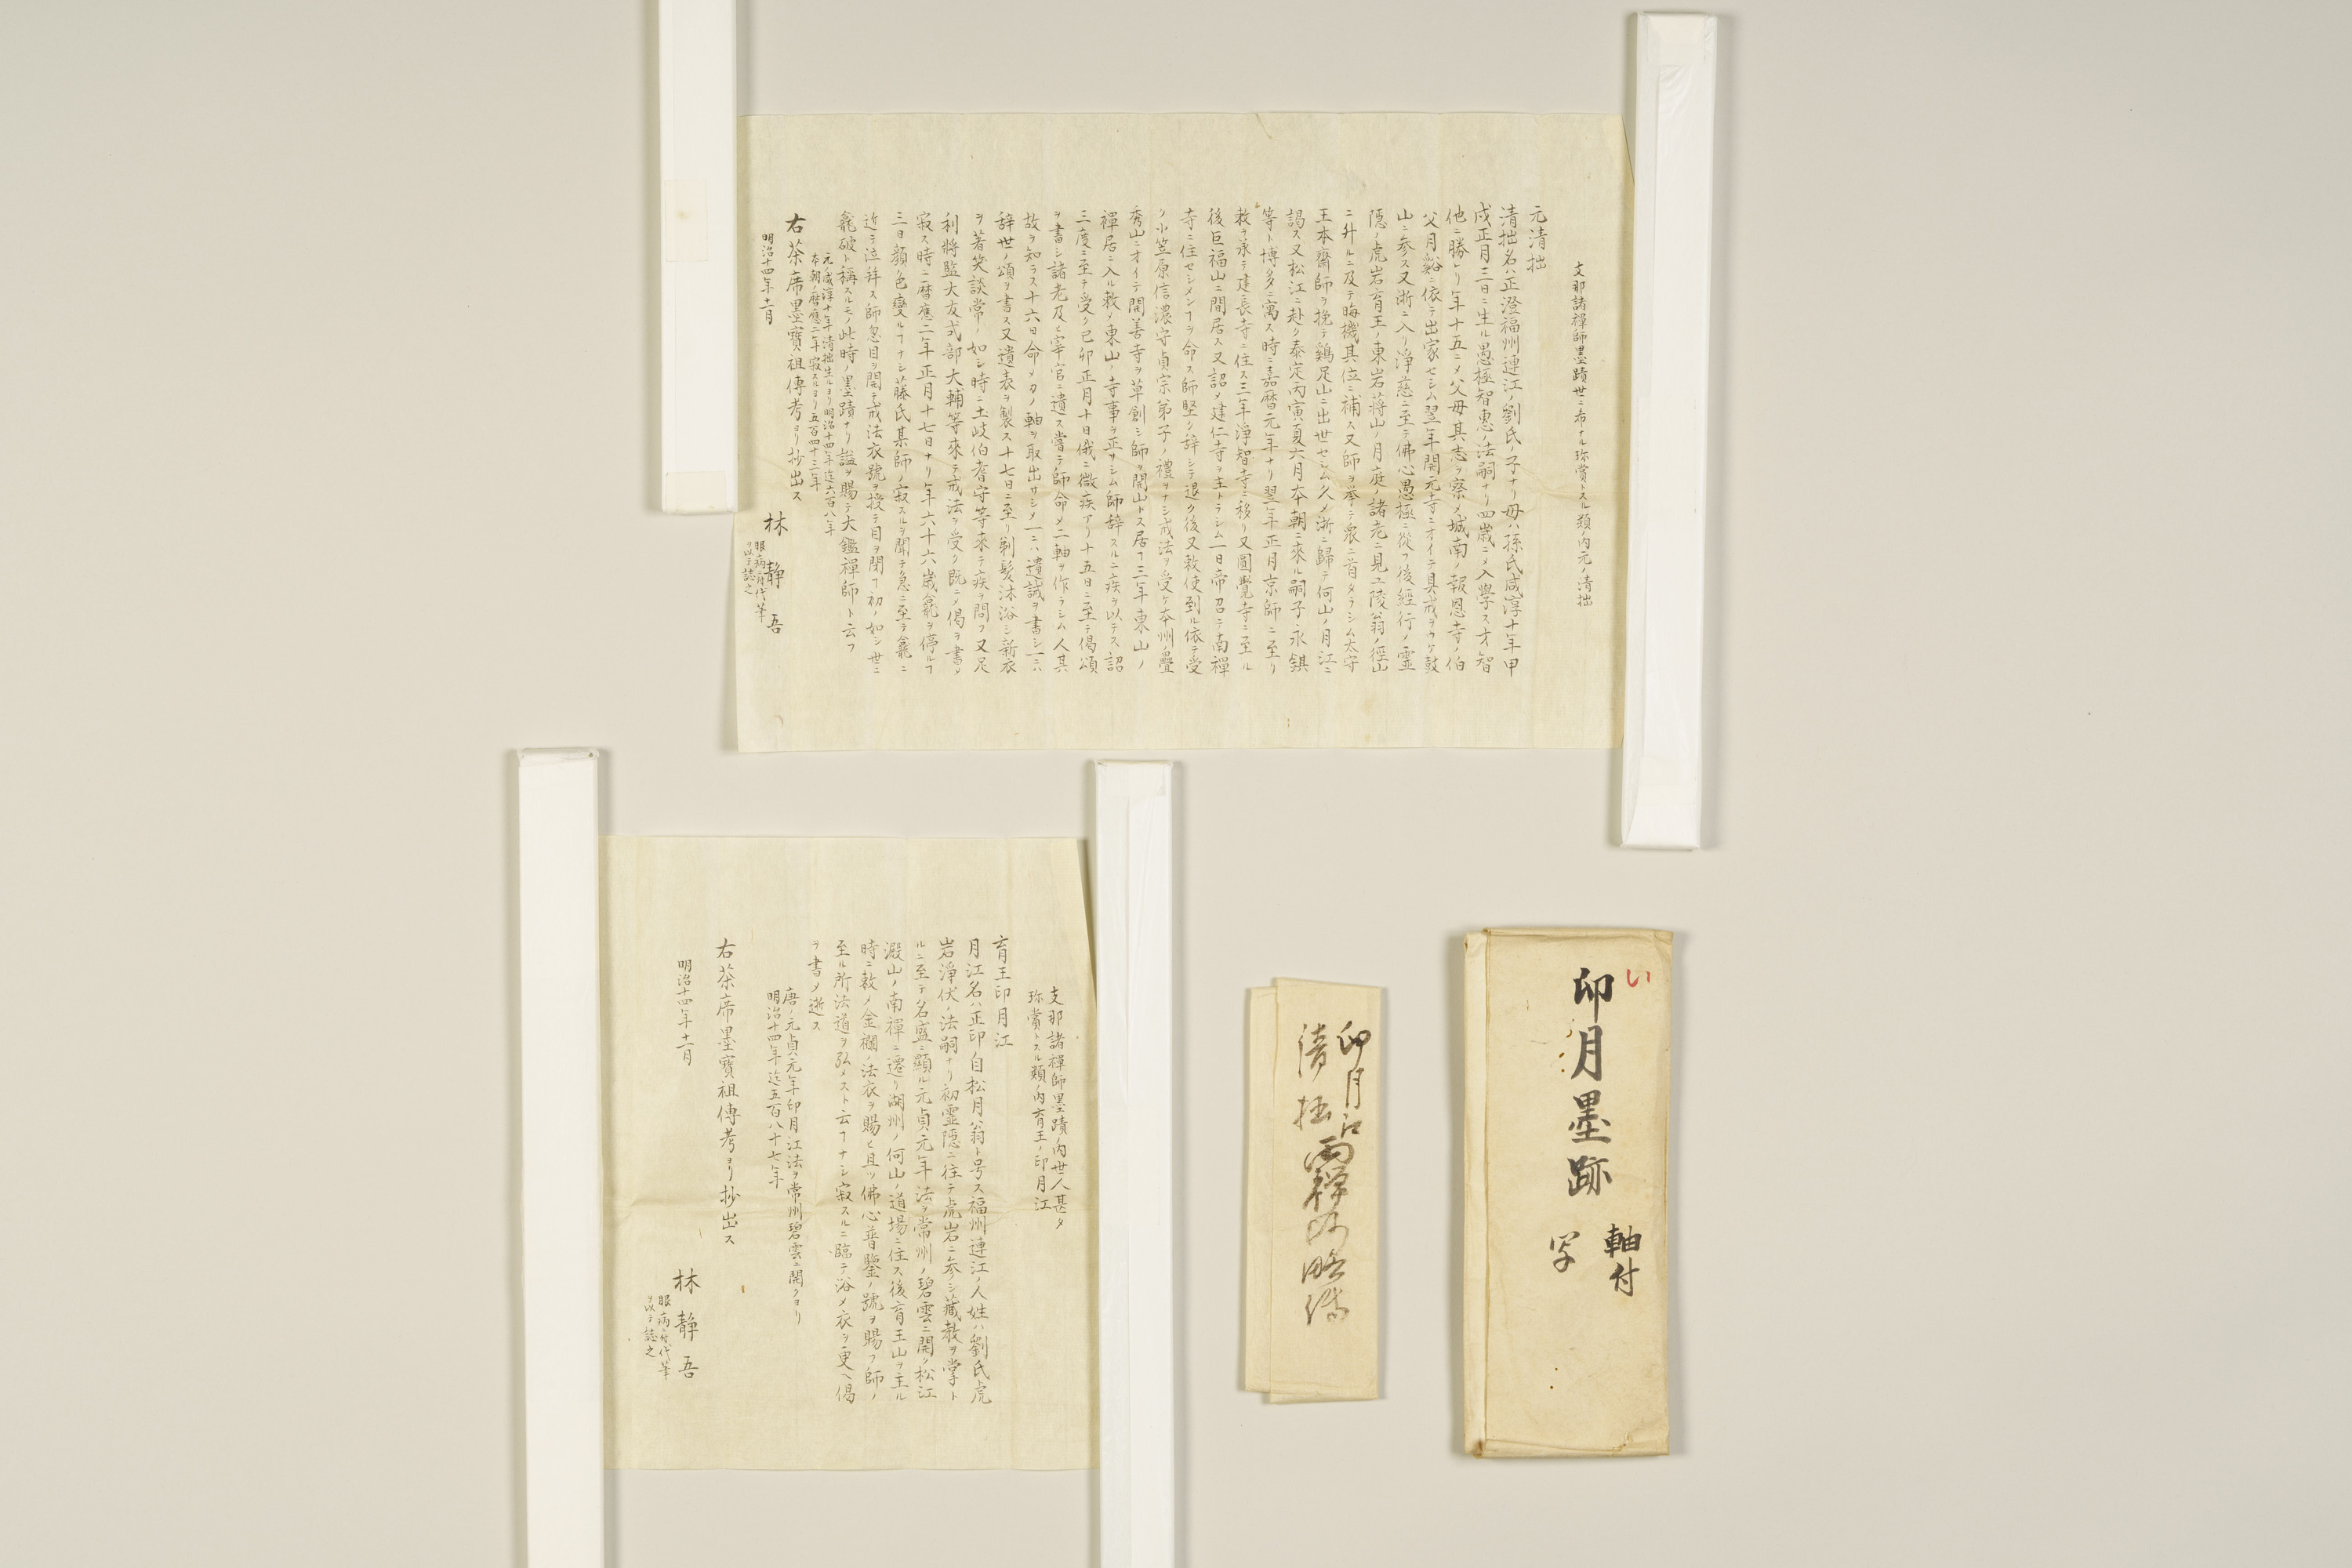 支那諸禪師墨蹟世ニ希ナル珎賞トスル類ノ内元ノ清拙
元清拙
清拙名ハ正澄福州連江ノ劉氏ノ子ナリ母ハ孫氏咸淳十年甲
戌正月三日ニ生ル愚極智惠ノ法嗣ナリ四歳ニメ入學ス才智
他ニ勝レリ年十五ニメ父母其志ヲ察メ城南ノ報恩寺ノ伯
父月谿ニ依テ出家セシム翌年開元寺ニオイテ具戒ヲウケ鼓
山ニ参ス又浙ニ入リ淨慈ニ至テ佛心愚極ニ從フ後經行ノ霊
隠ノ虎岩育王ノ東岩蒋山ノ月庭ノ諸老ニ見ユ陵翁ノ徑山
ニ升ルニ及テ晦機其位ニ補ス又師ヲ举テ衆ニ首タラシム太守
王本齋師ヲ挽テ鷄足山ニ出世セシム久メ浙ニ歸テ何山ノ月江ニ
謁ス又松江ニ赴ク泰定丙寅夏六月本朝ニ來ル嗣子永錤
等ト博多ニ寓ス時ニ嘉暦元年ナリ翌年正月京師ニ至リ
敕ヲ承テ建長寺ニ住ス三年淨智寺ニ移リ又圓覺寺ニ至ル
後巨福山ニ間居ス又詔メ建仁寺ヲ主トラシム一日帝召テ南禪
寺ニ住セシメンヿヲ命ス師堅ク辞シテ退ク後又敕使到ル依テ受
ク小笠原信濃守貞宗弟子ノ禮ヲナシ戒法ヲ受ケ本州ノ疊
秀山ニオイテ開善寺ヲ草創シ師ヲ開山トス居ヿ三年東山ノ
禪居ニ入ル敕メ東山ノ寺事ヲ正サシム師辞スルニ疾ヲ以テス詔
三度ニ至テ受ク己卯正月十日俄ニ微疾アリ十五日ニ至テ偈頌
ヲ書シ諸老及ヒ宰官ニ遺ス嘗テ師命メ二軸ヲ作ラシム人其
故ヲ知ラス十六日命メカノ軸ヲ取出サシメ一ニハ遺誡ヲ書シ一ニハ
辞世ノ頌ヲ書ス又遺表ヲ製ス十七日ニ至リ剃髪沐浴シ新衣
ヲ著笑談常ノ如シ時ニ土岐伯耆守等來テ疾ヲ問フ又足
利將監大友式部大輔等來テ戒法ヲ受ク既ニメ偈ヲ書メ
寂ス時ニ暦應二年正月十七日ナリ年六十六歳龕ヲ停ルヿ
三日顏色變ルヿナシ藤氏某師ノ寂スルヲ聞テ急ニ至テ龕ニ
近テ泣拜ス師忽目ヲ開テ戒法衣號ヲ授テ目ヲ閉フ初ノ如シ世ニ
龕破ト稱スルモノ此時ノ墨蹟ナリ謚ヲ賜テ大鑑禪師ト云フ
元ノ咸淳十年清拙生ルヨリ明治十四年迄六百八年
本朝ノ暦應二年寂スルヨリ五百四十三年
右茶席墨寶祖傳考ヨリ抄出ス
明治十四年十一月
林静吾
眼病ニ付代筆
ヲ以テ誌之
支那諸禪師墨蹟ノ内世人甚タ
珎賞トスル類ノ内育王ノ印月江
育王印月江
月江名ハ正印自松月翁ト号ス福州連江ノ人姓ハ劉氏虎
岩淨伏ノ法嗣ナリ初霊隠ニ往テ虎岩ニ参シ藏教ヲ掌ト
ルニ至テ名盛ニ顯ル元貞元年法ヲ常州ノ碧雲ニ開ク松江
澱山ノ南禪ニ遷リ湖州ノ何山ノ道場ニ住ス後育王山ヲ主ル
時ニ敕メ金襴ノ法衣ヲ賜ヒ且ツ佛心普鑒ノ號ヲ賜フ師ノ
至ル所法道ヲ弘メスト云ヿナシ寂スルニ臨テ浴メ衣ヲ更ヘ偈
ヲ書メ逝ス
唐ノ元貞元年印月江法ヲ常州碧雲ニ開クヨリ
明治十四年迄五百八十七年
右茶席墨寶祖傳考ヨリ抄出ス
明治十四年十一月
林静吾
眼病ニ付代筆
ヲ以テ誌之
印月江
清拙
両禅师略傳
い
印月墨跡
軸付
写